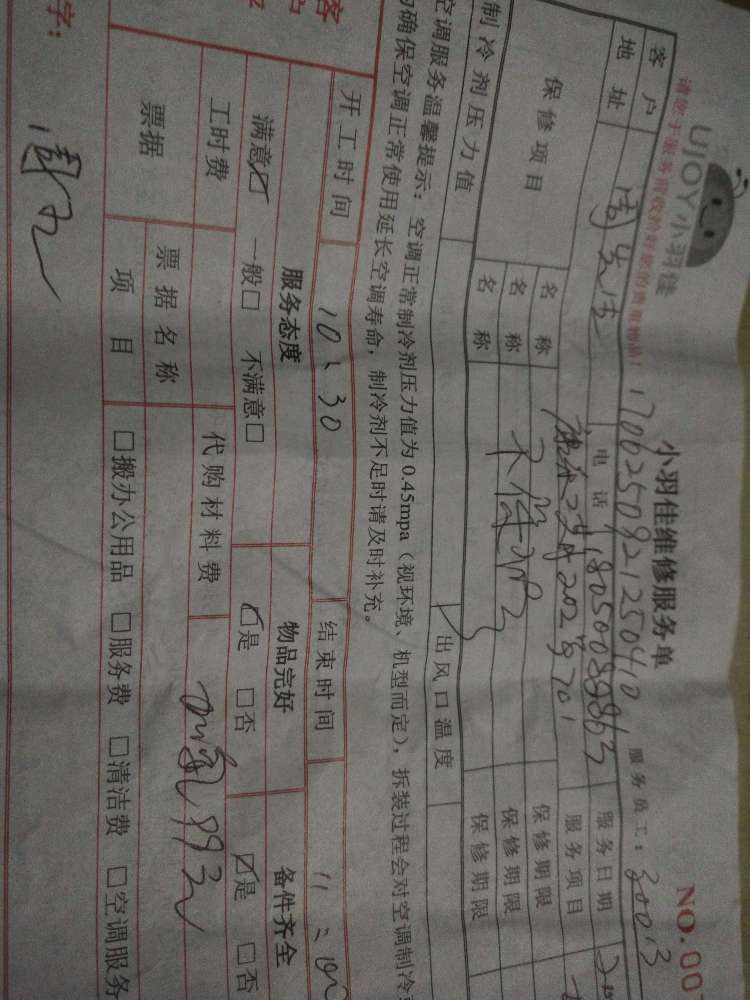 UJOY小羽佳
小羽佳维修服务单
NO.00
请您于服务前收拾好您的贵重物品!
1706250921250410
服务员工:
30013
客户
周先生
电话
18050089863
服务日期
地址
202
701
服务项目
保修项目
名称
保修期限
名称
不保修
保修期限
名称
保修期限
制冷剂压力值
出风口温度
空调服务温馨提示:空调正常制冷剂压力值为0.45mpa(视环境、机型而定),拆装过程会对空调制冷
确保空调正常使用延长空调寿命,制冷剂不足时请及时补充。
开工时间
10:30
结束时间
11:
服务态度
物品完好
备件齐全
满意☑ 一般□ 不满意□
☑是 □否
☑是 □否
工时费
代购材料费
票据
票据名称
项目
□搬办公用品 □服务费 □清洁费 □空调服务
字: